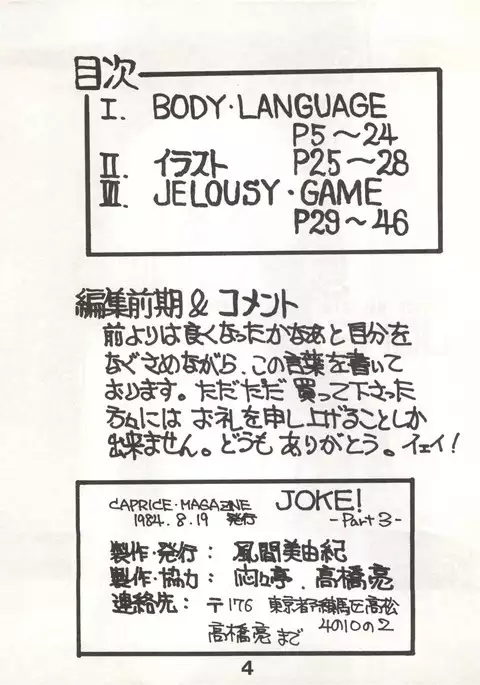 目次
I. BODY・LANGUAGE
P5〜24
II. イラスト P25〜28
III. JELOUSY・GAME
P29〜46
編集前期 & コメント
前よりは良くなったかなあと自分を
なぐさめながら、この言葉を書いて
おります。ただただ 買って下さった
方々には お礼を申し上げることしか
出来ません。どうも ありがとう。イェイ!
CAPRICE・MAGAZINE JOKE!
1984.8.19 発行 -Part3-
製作・発行: 風間美由紀
製作・協力: 悶々亭、高橋亮
連絡先: 〒176 東京都練馬区高松
4の10の2
高橋亮 まで
4